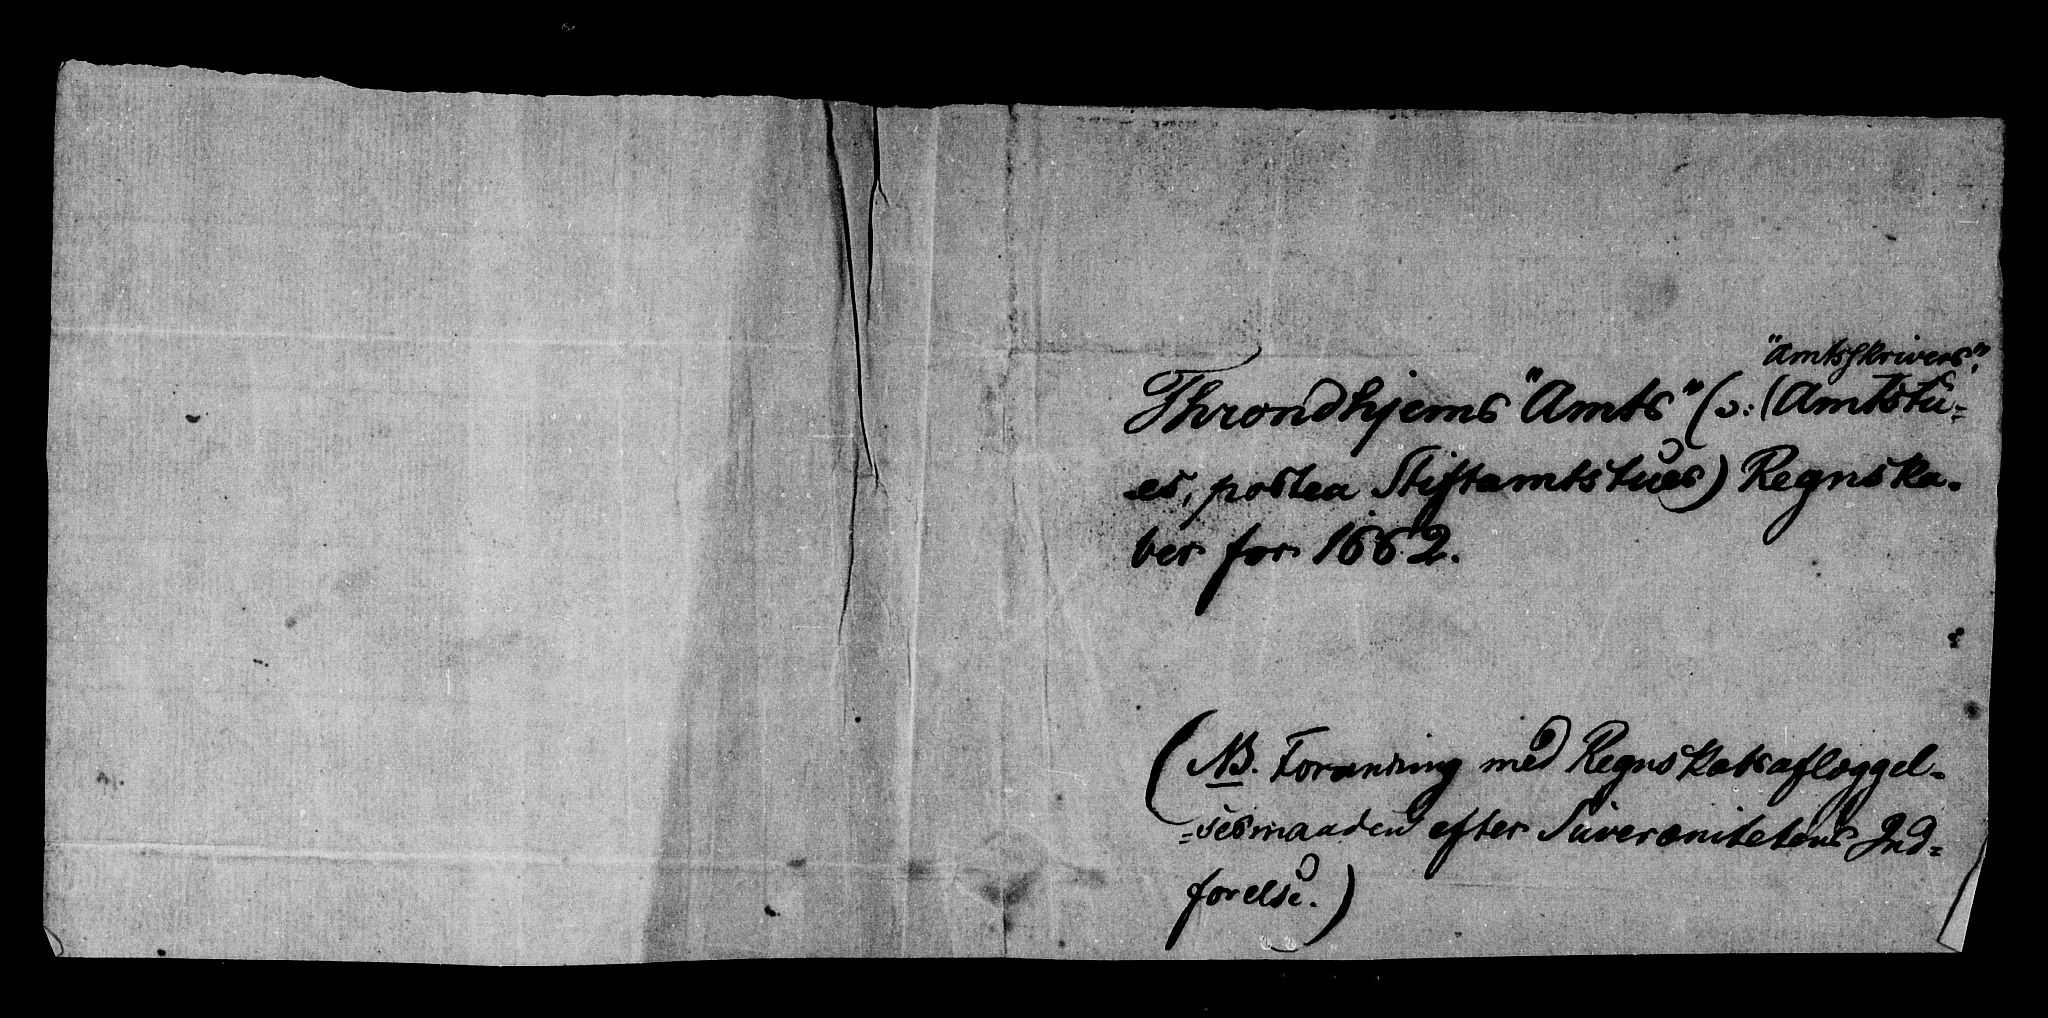 "Amtsskrivers",
Throndhjems "Amts" (ɔ: (Amtstu-
es, postea Stiftamtstues) Regnska-
ber for 1662.
(NB. Forandring med Regnskabsaflæggel-
sesmaaden efter Suverænitetens Ind-
førelse.)